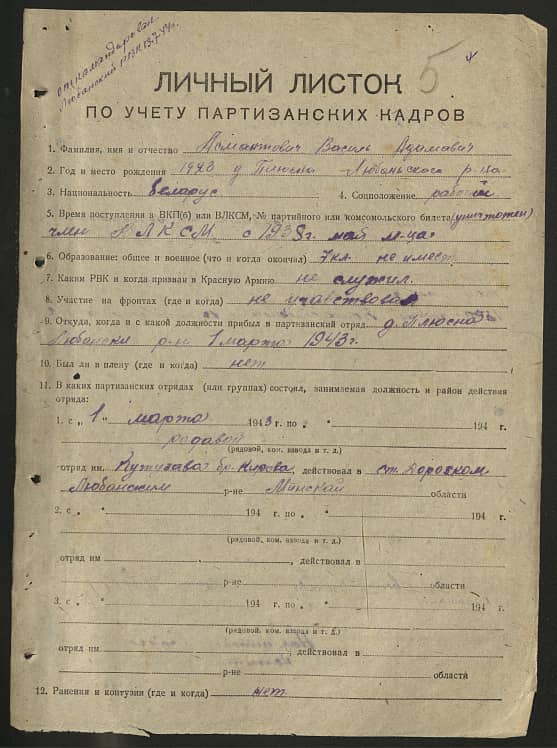 откомандирован
Любанский 13.7.44г.
5
ЛИЧНЫЙ ЛИСТОК
ПО УЧЕТУ ПАРТИЗАНСКИХ КАДРОВ
1. Фамилия, имя и отчество Асмантович Василь Адамавич
2. Год и место рождения 1923 д Плюсна Любаньского р-на
3. Национальность беларус 4. Соцположение рабочий
5. Время поступления в ВКП(б) или ВЛКСМ, № партийного или комсомольского билета (уничтожен)
член ВЛКСМ с 1938г. май м-ца
6. Образование: общее и военное (что и когда окончил) 7 кл. не имеет
7. Каким РВК и когда призван в Красную Армию не служил.
8. Участие на фронтах (где и когда) не учавствовал
9. Откуда, когда и с какой должности прибыл в партизанский отряд д. Плюсна
Любански р-н 1 марта 1943г.
10. Был ли в плену (где и когда) нет
11. В каких партизанских отрядах (или группах) состоял, занимаемая должность и район действия
отряда:
1. с „ 1 " марта 1943 г. по „ " 194 г.
родавой
(рядовой, ком. взвода и т. д.)
отряд им. Кутузава бр. Кирова, действовал в ст. Дорожном
Любанским р-не Минской области
2. с „ " 194 г. по „ " 194 г.
(рядовой, ком. взвода и т. д.)
отряд им , действовал в
р-не области
3. с „ " 194 г. по „ " 194 г.
(рядовой, ком. взвода и т. д.)
отряд им , действовал в
р-не области
12. Ранения и контузии (где и когда) нет